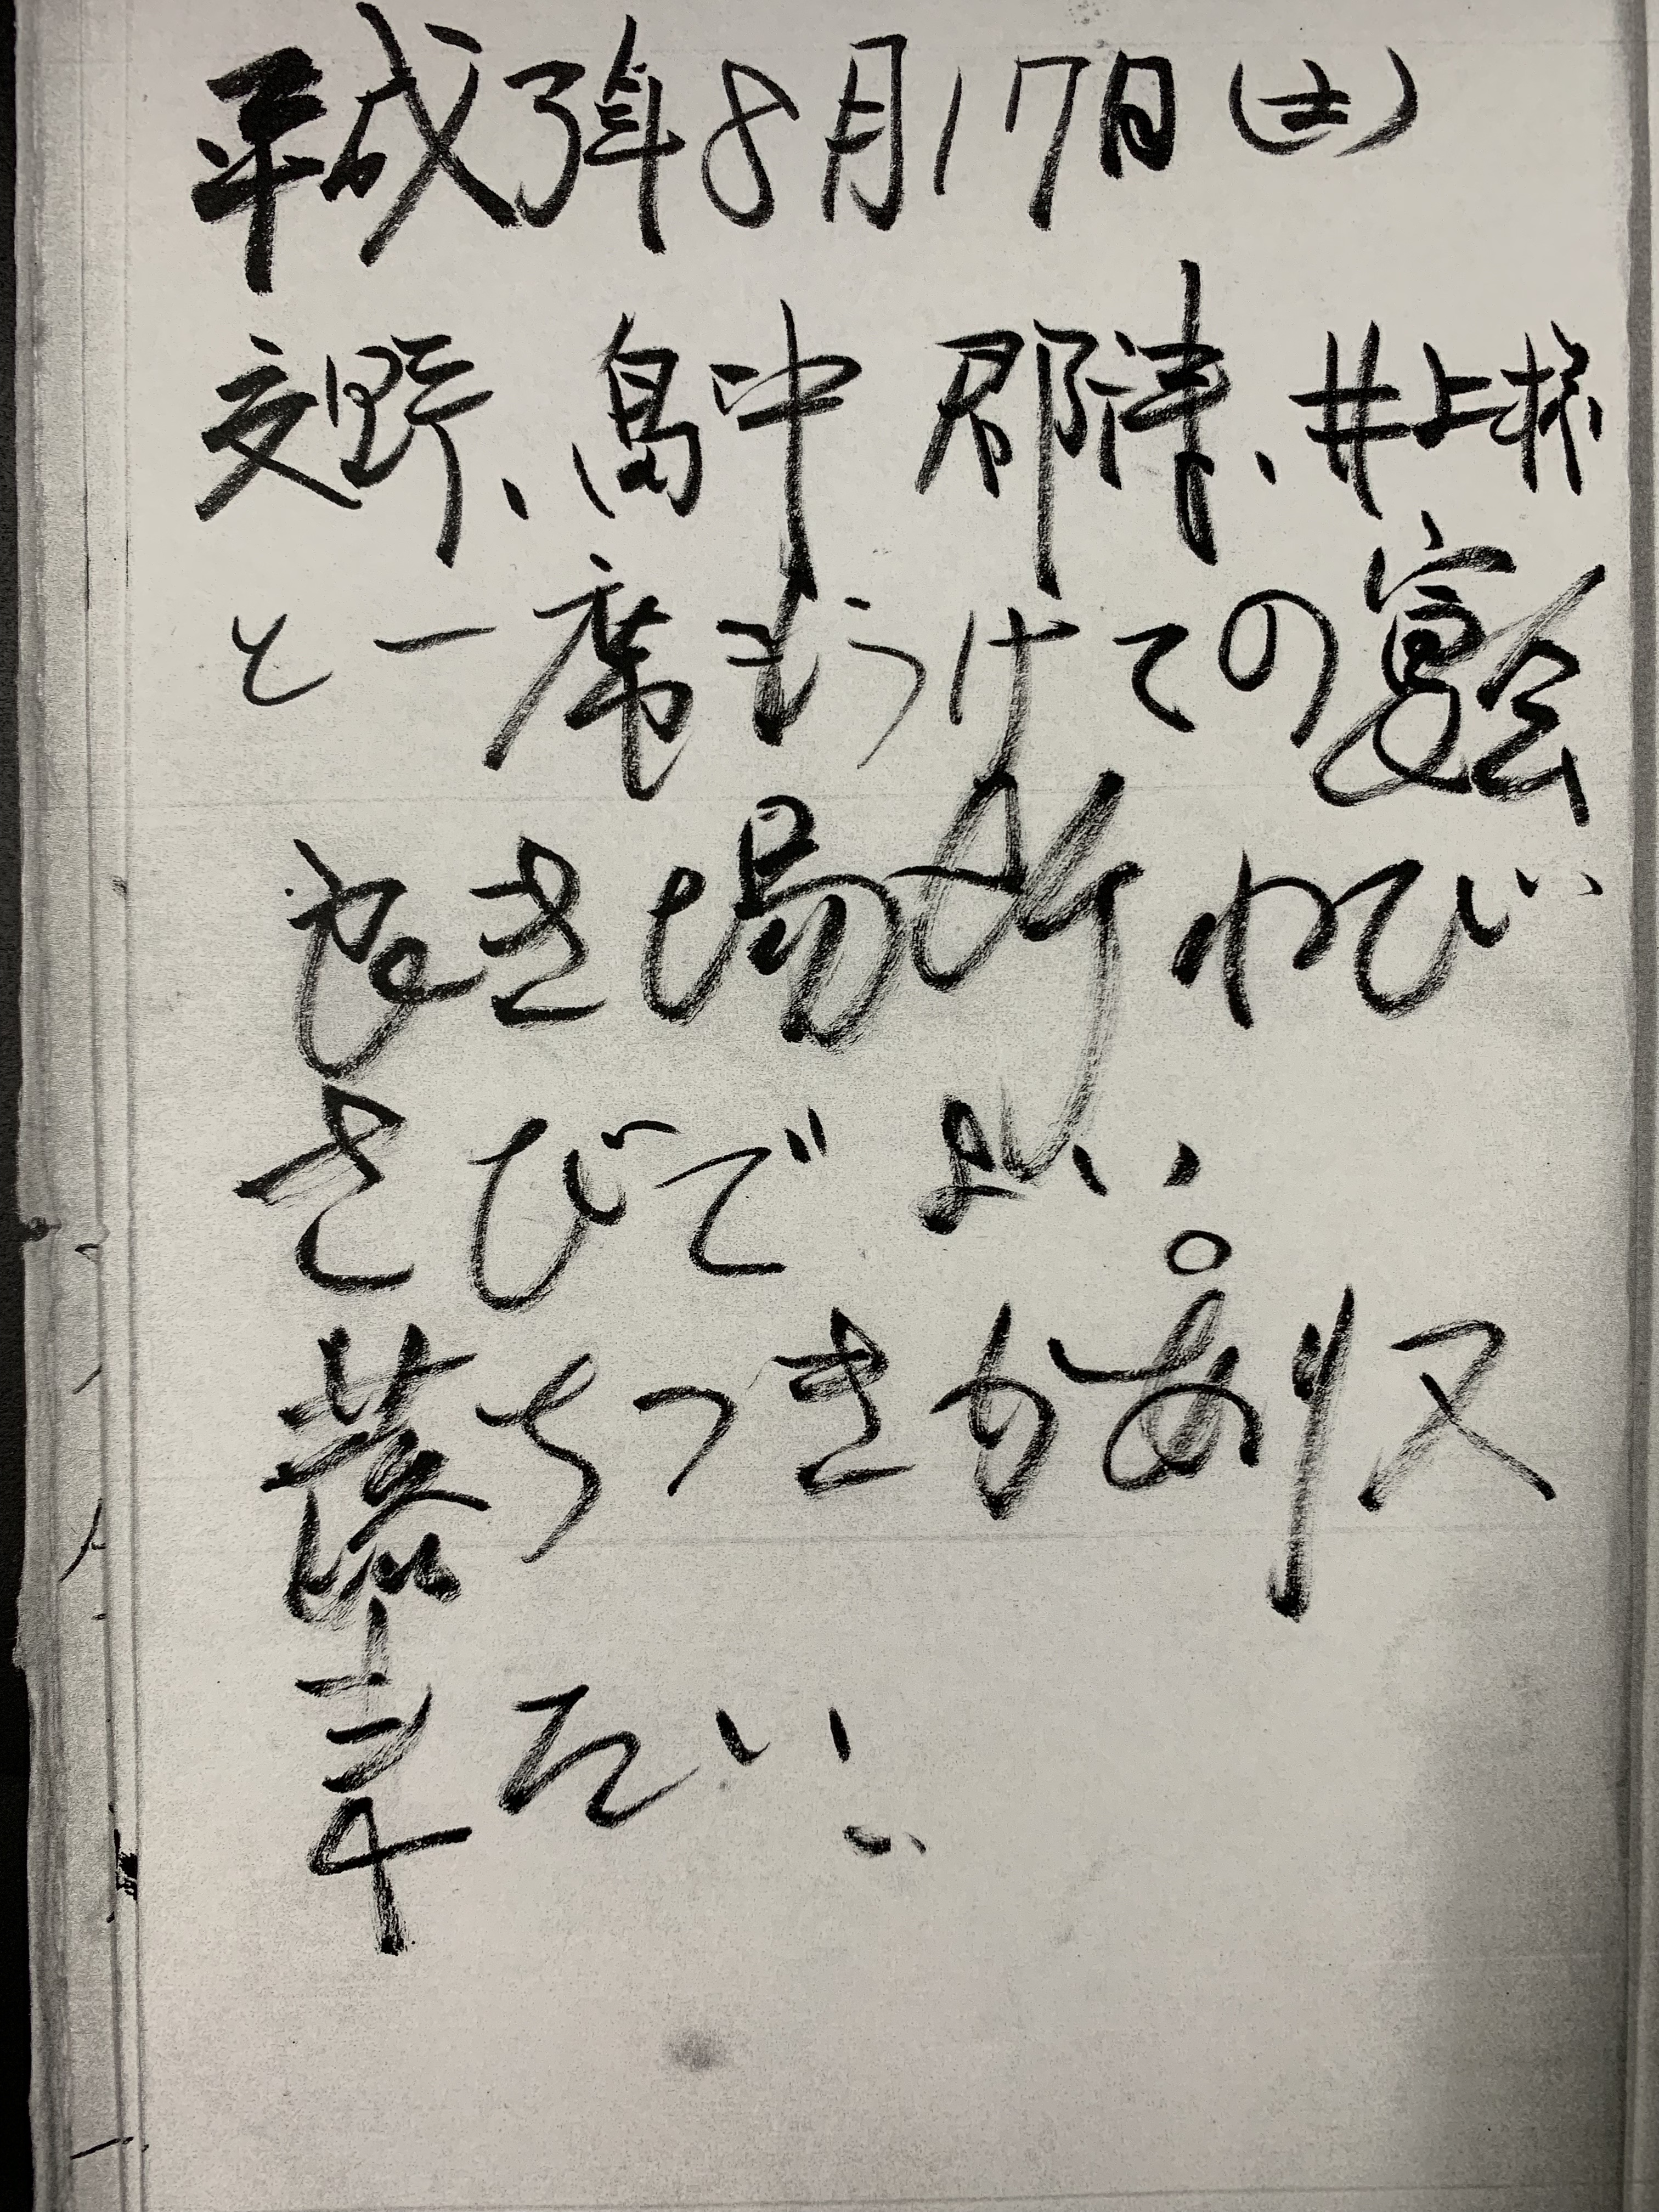 平成3年8月17日(土)
交野、畠中 郡津、井上様
と一席もうけての宴会
よき場所わび
さびでよい。
落ちつきがあり又
来たい。